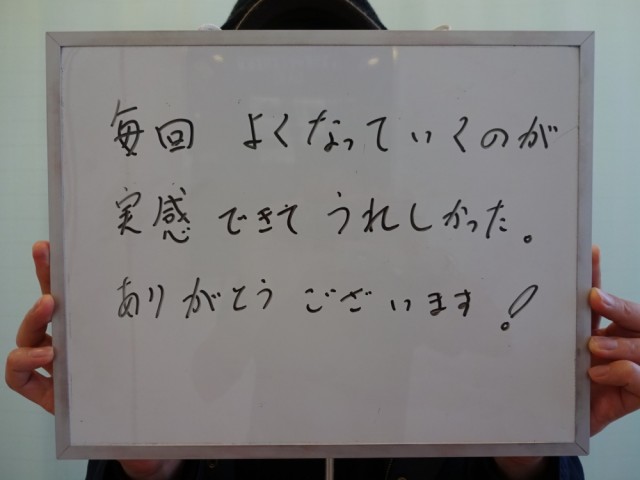 毎回 よくなっていくのが
実感 できて うれしかった。
ありがとう ございます!